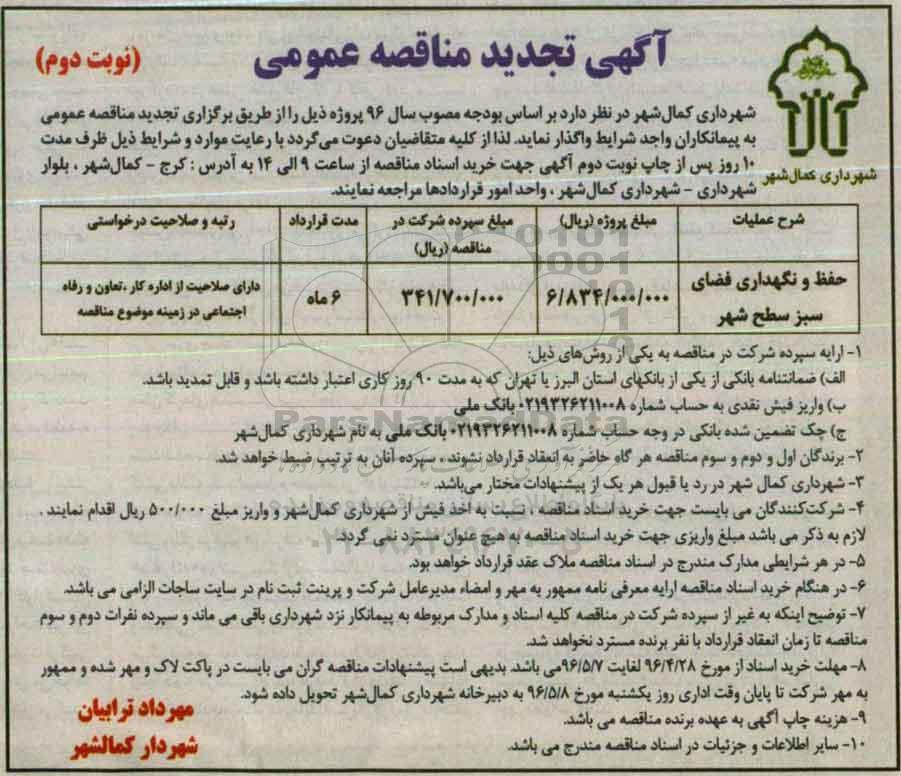 آگهی تجدید مناقصه عمومی
(نوبت دوم)
شهرداری کمال‌شهر
شهرداری کمال‌شهر در نظر دارد بر اساس بودجه مصوب سال ۹۶ پروژه ذیل را از طریق برگزاری تجدید مناقصه عمومی
به پیمانکاران واجد شرایط واگذار نماید. لذا از کلیه متقاضیان دعوت می‌گردد با رعایت موارد و شرایط ذیل ظرف مدت
۱۰ روز پس از چاپ نوبت دوم آگهی جهت خرید اسناد مناقصه از ساعت ۹ الی ۱۴ به آدرس : کرج - کمال‌شهر ، بلوار
شهرداری - شهرداری کمال‌شهر ، واحد امور قراردادها مراجعه نمایند.
شرح عملیات
مبلغ پروژه (ریال)
مبلغ سپرده شرکت در
مناقصه (ریال)
مدت قرارداد
رتبه و صلاحیت درخواستی
حفظ و نگهداری فضای
سبز سطح شهر
۶/۸۳۴/۰۰۰/۰۰۰
۳۴۱/۷۰۰/۰۰۰
۶ ماه
دارای صلاحیت از اداره کار ،تعاون و رفاه
اجتماعی در زمینه موضوع مناقصه
۱- ارایه سپرده شرکت در مناقصه به یکی از روش‌های ذیل:
الف) ضمانتنامه بانکی از یکی از بانکهای استان البرز یا تهران که به مدت ۹۰ روز کاری اعتبار داشته باشد و قابل تمدید باشد.
ب) واریز فیش نقدی به حساب شماره ۰۲۱۹۳۲۶۲۱۱۰۰۸ بانک ملی
ج) چک تضمین شده بانکی در وجه حساب شماره ۰۲۱۹۳۲۶۲۱۱۰۰۸ بانک ملی به نام شهرداری کمال‌شهر
۲- برندگان اول و دوم و سوم مناقصه هر گاه حاضر به انعقاد قرارداد نشوند ، سپرده آنان به ترتیب ضبط خواهد شد.
۳- شهرداری کمال شهر در رد یا قبول هر یک از پیشنهادات مختار می‌باشد.
۴- شرکت‌کنندگان می بایست جهت خرید اسناد مناقصه ، نسبت به اخذ فیش از شهرداری کمال‌شهر و واریز مبلغ ۵۰۰/۰۰۰ ریال اقدام نمایند .
لازم به ذکر می باشد مبلغ واریزی جهت خرید اسناد مناقصه به هیچ عنوان مسترد نمی گردد.
۵- در هر شرایطی مدارک مندرج در اسناد مناقصه ملاک عقد قرارداد خواهد بود.
۶- در هنگام خرید اسناد مناقصه ارایه معرفی نامه ممهور به مهر و امضاء مدیرعامل شرکت و پرینت ثبت نام در سایت ساجات الزامی می باشد.
۷- توضیح اینکه به غیر از سپرده شرکت در مناقصه کلیه اسناد و مدارک مربوطه به پیمانکار نزد شهرداری باقی می ماند و سپرده نفرات دوم و سوم
مناقصه تا زمان انعقاد قرارداد با نفر برنده مسترد نخواهد شد.
۸- مهلت خرید اسناد از مورخ ۹۶/۴/۲۸ لغایت ۹۶/۵/۷می باشد. بدیهی است پیشنهادات مناقصه گران می بایست در پاکت لاک و مهر شده و ممهور
به مهر شرکت تا پایان وقت اداری روز یکشنبه مورخ ۹۶/۵/۸ به دبیرخانه شهرداری کمال‌شهر تحویل داده شود.
۹- هزینه چاپ آگهی به عهده برنده مناقصه می باشد.
۱۰- سایر اطلاعات و جزئیات در اسناد مناقصه مندرج می باشد.
مهرداد ترابیان
شهردار کمالشهر
ParsNamadData